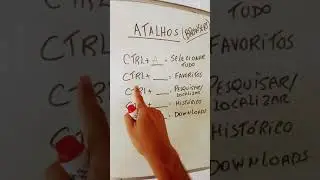 ATALHOS (BROWSER)
CTRL + A = SELECIONAR TUDO
CTRL + __ = FAVORITOS
CTRL + __ = PESQUISAR/LOCALIZAR
__ = HISTÓRICO
__ = DOWNLOADS
TUDO
FAVORITOS
PESQUISAR/
LOCALIZAR
HISTÓRICO
DOWNLOADS